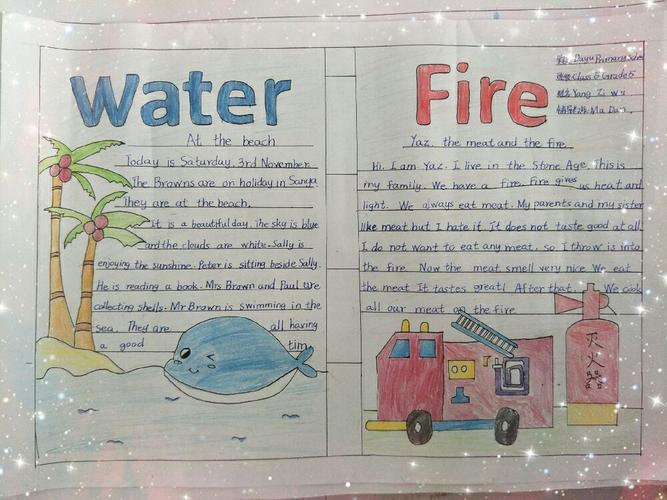 Water
At the beach
Today is Saturday, 3rd November.
The Browns are on holiday in Sanya.
They are at the beach.
It is a beautiful day. The sky is blue
and the clouds are white. Sally is
enjoying the sunshine. Peter is sitting beside Sally.
He is reading a book. Mrs Brown and Paul are
collecting shells. Mr Brown is swimming in the
sea. They are all having
a good tim
Fire
Dayu Primary
Class 6 Grade 5
Yang Zi
Ma Dan
Yaz, the meat and the fire
Hi. I am Yaz. I live in the Stone Age. This is
my family. We have a fire. Fire gives us heat and
light. We always eat meat. My parents and my sister
like meat but I hate it. It does not taste good at all.
I do not want to eat any meat, so I throw is into
the fire. Now the meat smell very nice We eat
the meat It tastes great! After that, We cook
all our meat on the fire
灭火器